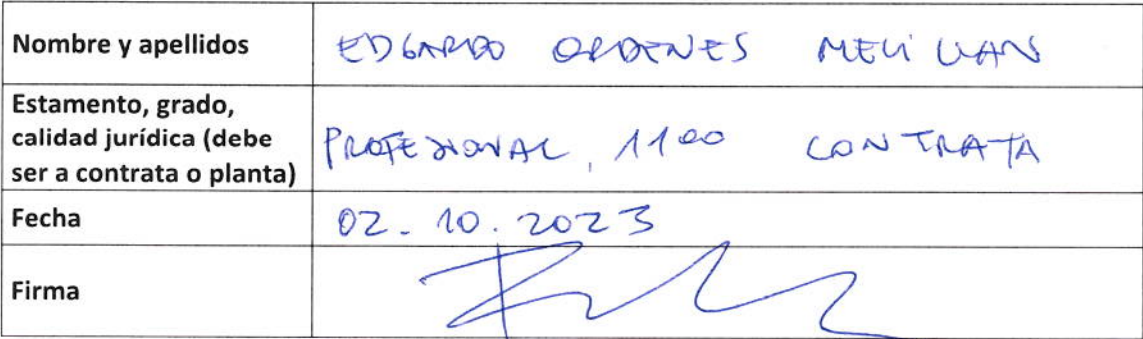 Nombre y apellidos
EDGARDO ORDENES MELILLAN
Estamento, grado,
calidad jurídica (debe
ser a contrata o planta)
PROFESIONAL, 11°° CONTRATA
Fecha
02. 10. 2023
Firma